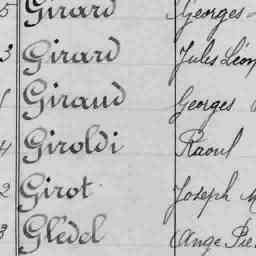 5 Girard Georges
3 Girard Jules Léon
Giraud Georges
4 Giroldi Raoul
2 Girot Joseph
3 Glédel Ange